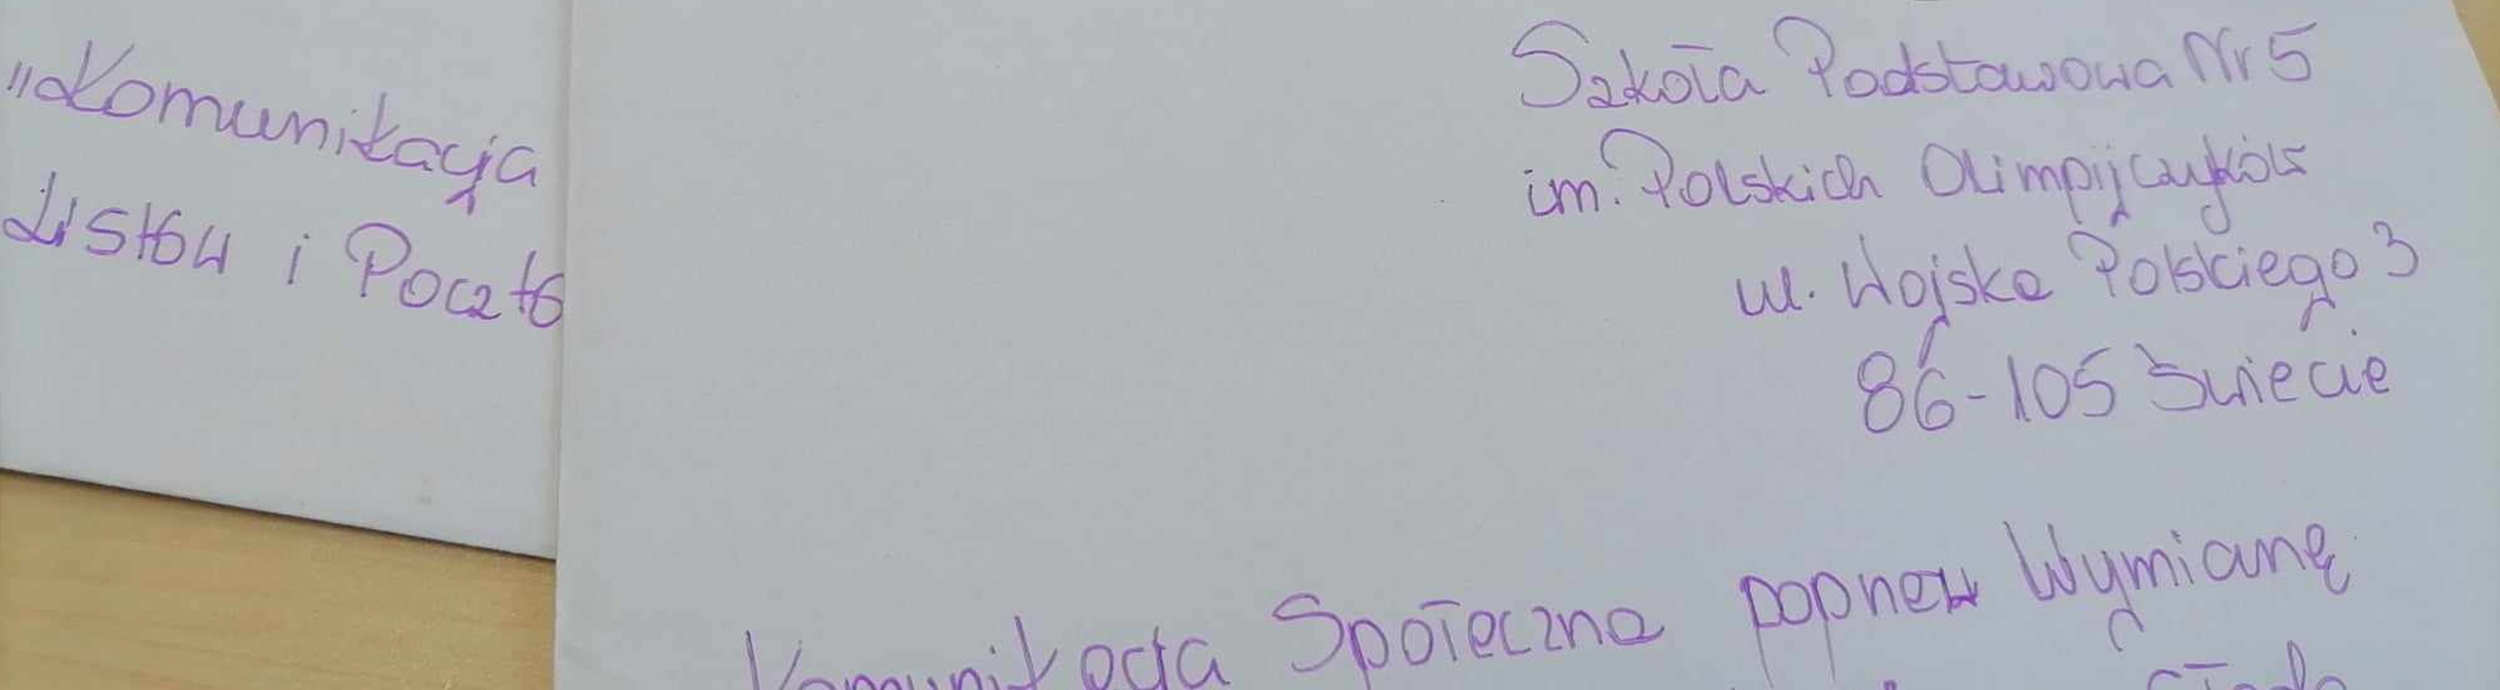 "Komunikacja
Listów i Poczto
Szkoła Podstawowa Nr 5
im. Polskich Olimpijczyków
ul. Wojska Polskiego 3
86-105 Świecie
Komunikacja Społeczna poprzez Wymianę